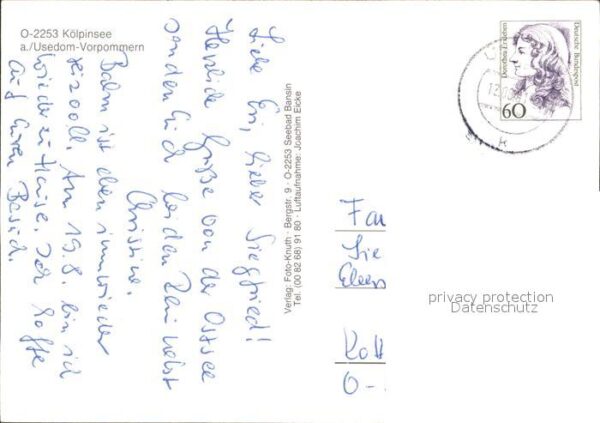 O-2253 Kölpinsee
a./Usedom-Vorpommern
Liebe Evi, lieber Siegfried!
Herzliche Grüße von der Ostsee
senden Euch beiden Reinholst
Christine.
Balm ist eben immer wieder
reizvoll. Am 19.8. bin ich
wieder zu Hause. Ich hoffe
auf Euren Besuch.
Verlag: Foto-Knuth · Bergstr. 9 · O-2253 Seebad Bansin
Tel. (00 82 68) 91 80 · Luftaufnahme: Joachim Eicke
Dorothea Erxleben
Deutsche Bundespost
60
Fam
Sie
Kott
O-
privacy protection
Datenschutz